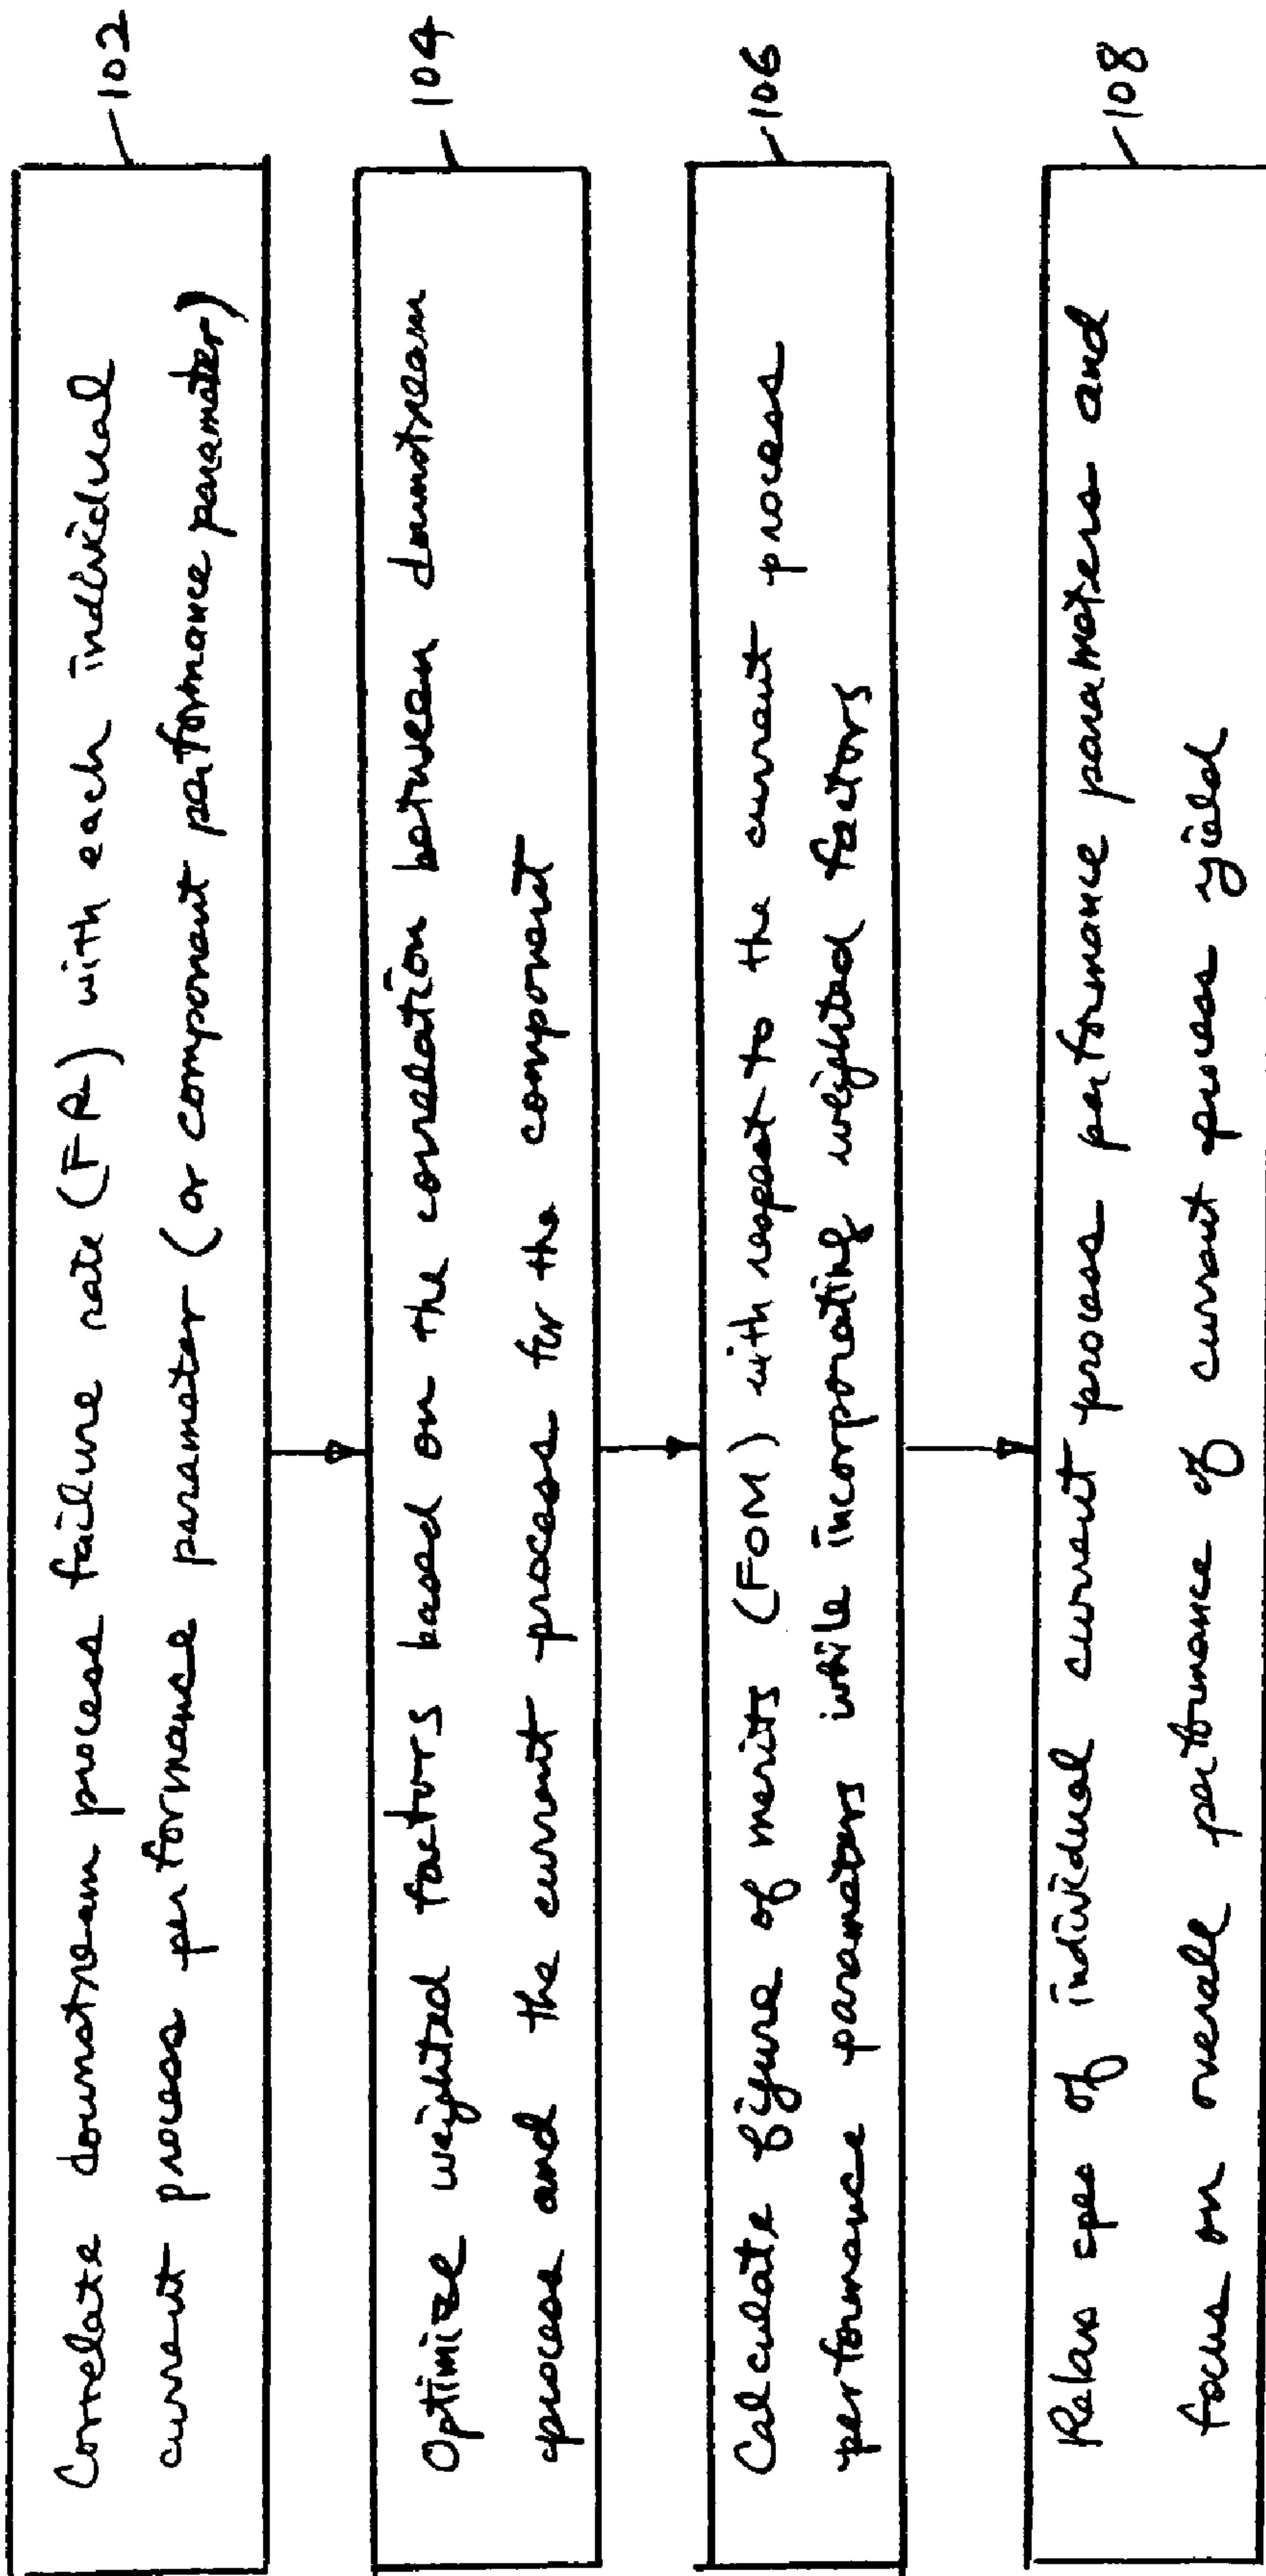 Correlate downstream process failure rate (FR) with each individual
current process performance parameter (or component performance parameter)
102
Optimize weighted factors based on the correlation between downstream
process and the current process for the component
104
Calculate figure of merits (FOM) with respect to the current process
performance parameters while incorporating weighted factors
106
Relax spec of individual current process performance parameters and
focus on overall performance of current process yield
108